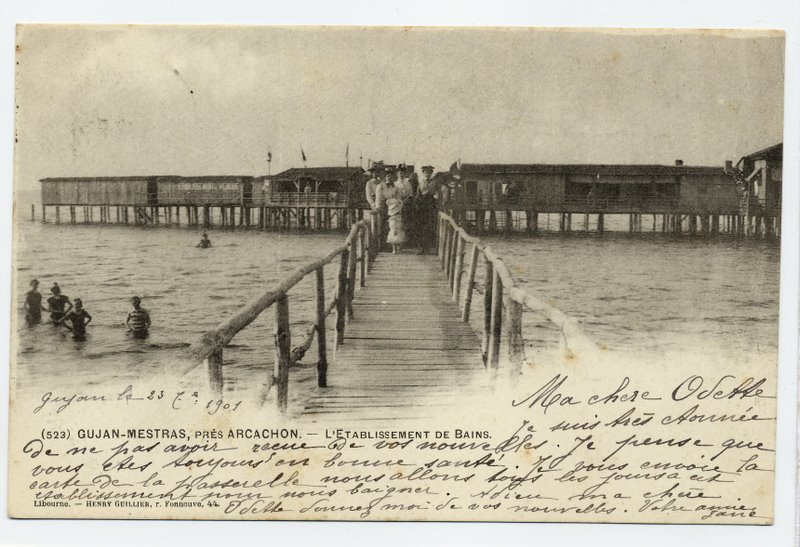 Gujan le 23 7re 1901
Ma chere Odette
Je suis très étonnée
(523) GUJAN-MESTRAS, PRÈS ARCACHON. — L'ETABLISSEMENT DE BAINS.
de ne pas avoir recue de vos nouvelles. Je pense que
vous etes toujours en bonne santé. Je vous envoie la
carte de la passerelle nous allons tous les jours a cet
etablissement pour nous baigner. Adieu ma chere
Libourne. — HENRY GUILLIER, r. Fonneuve, 44.
Odette donnez moi de vos nouvelles. Votre amie